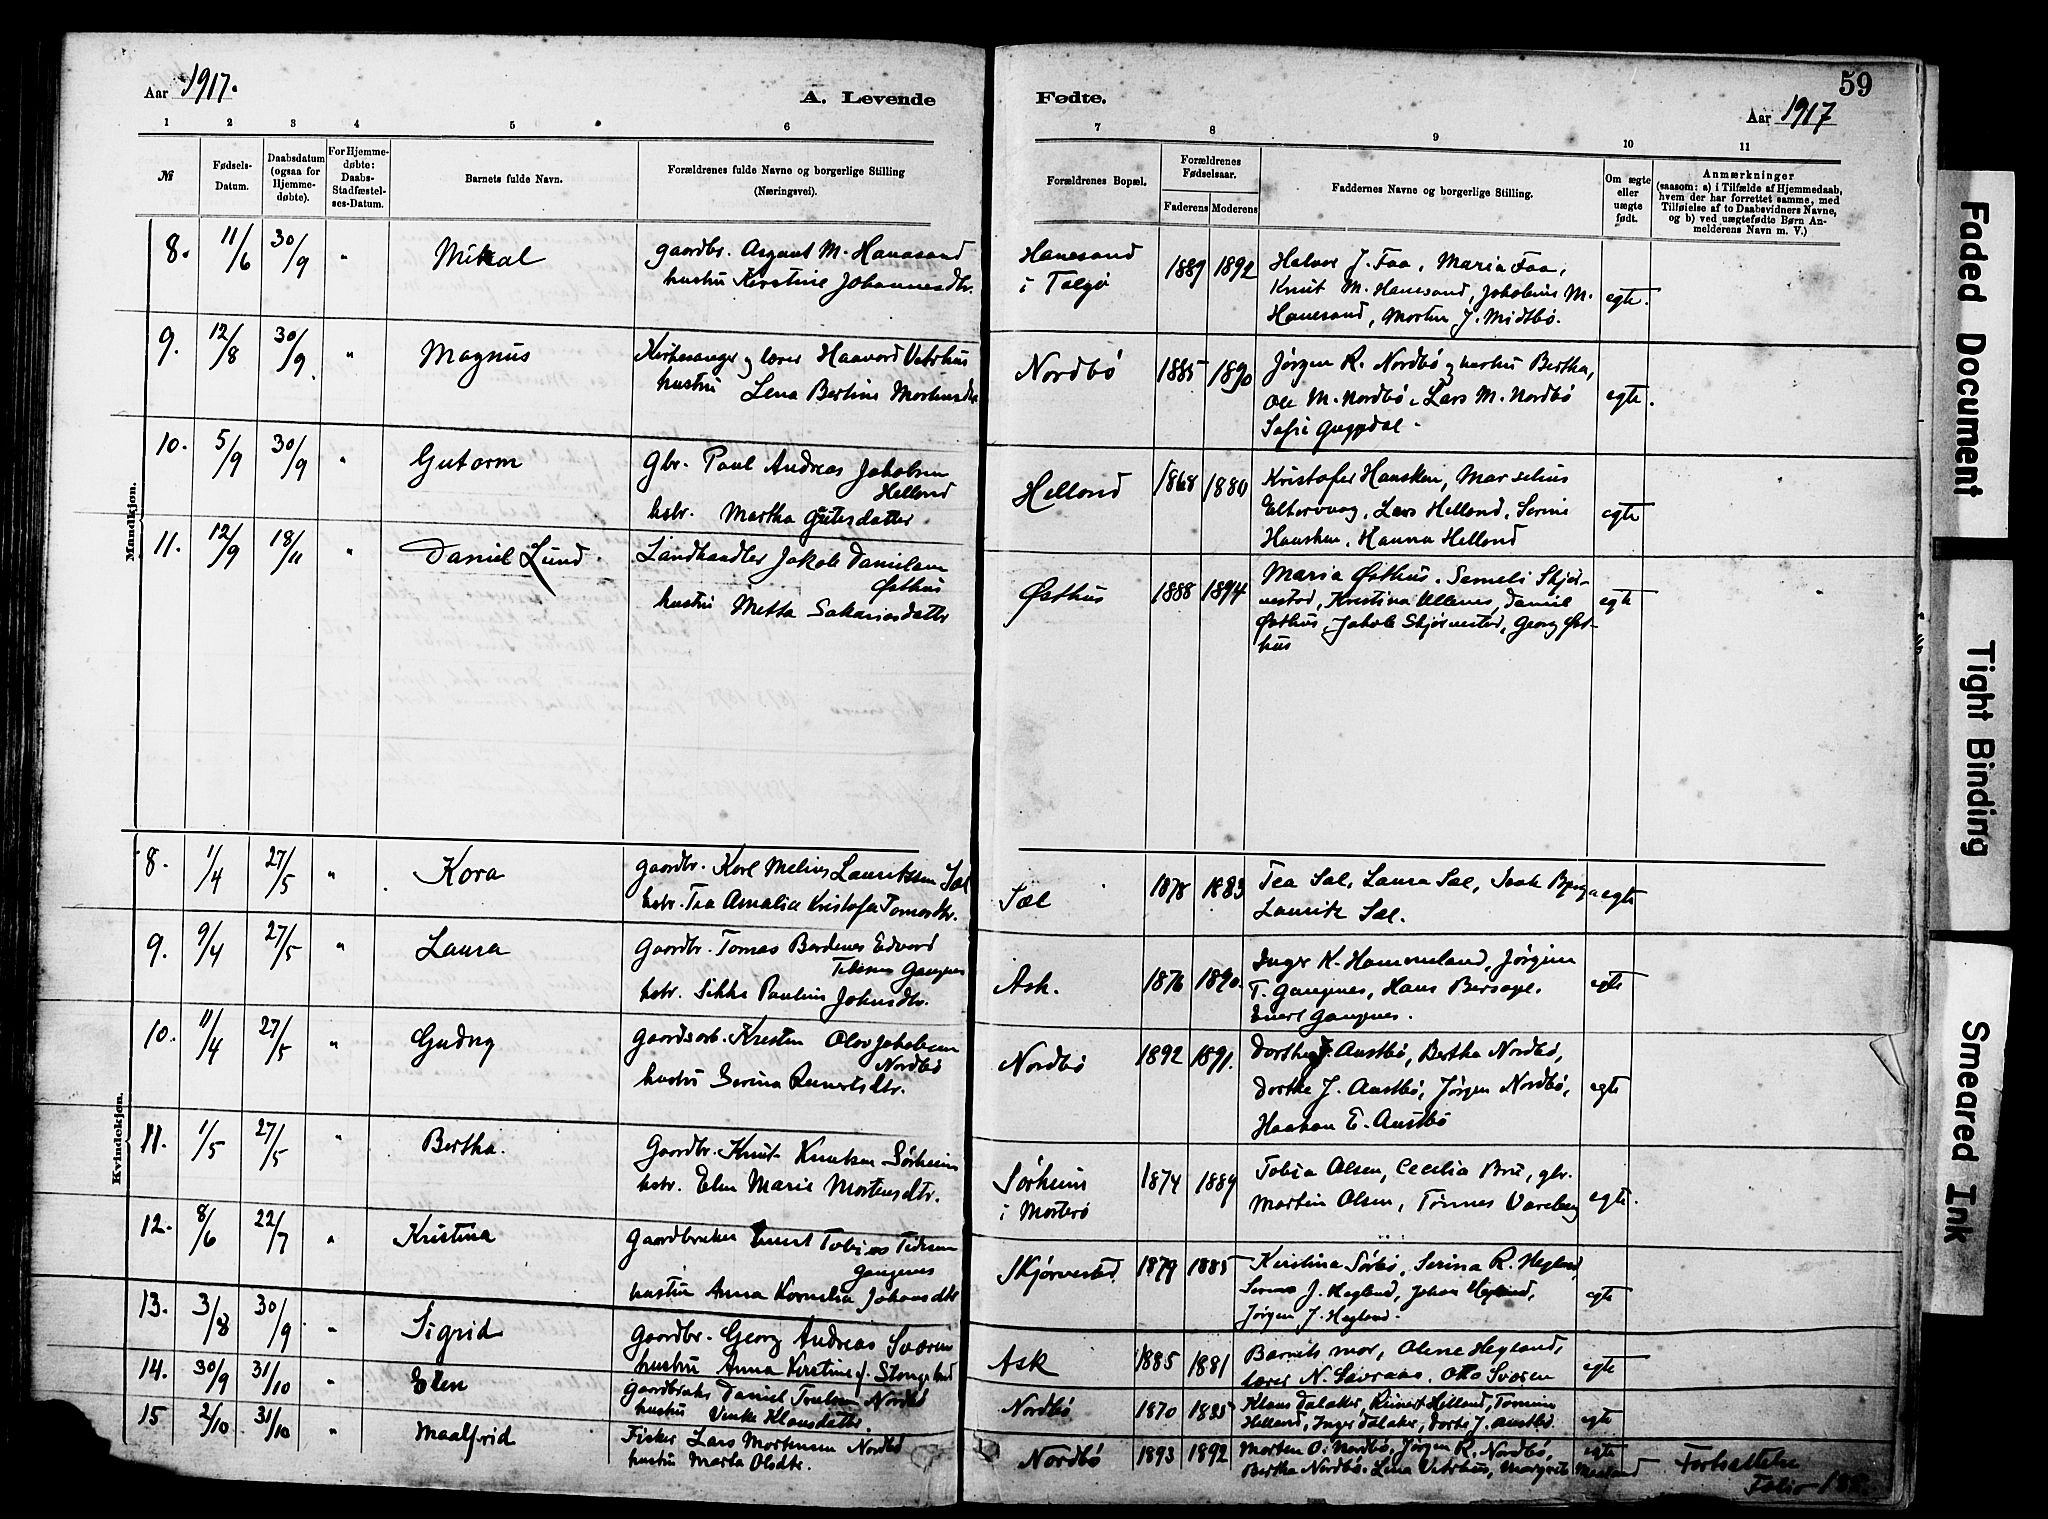 59
Aar 1917.
A. Levende
Fødte.
Aar 1917
1 2 3 4 5 6 7 8 9 10 11
№
Fødsels-
Datum.
Daabsdatum
(ogsaa for
Hjemme-
døbte).
For Hjemme-
døbte:
Daabs-
Stadfæstel-
ses-Datum.
Barnets fulde Navn.
Forældrenes fulde Navne og borgerlige Stilling
(Næringsvei).
Forældrenes Bopæl.
Forældrenes
Fødselsaar.
Faderens Moderens
Faddernes Navne og borgerlige Stilling.
Om ægte
eller
uægte
født.
Anmærkninger
(saasom: a) i Tilfælde af Hjemmedaab,
hvem der har forrettet samme, med
Tilføielse af to Daabsvidners Navne,
og b) ved uægtefødte Børn An-
melderens Navn m. V.)
Mandkjøn.
8. 11/6 30/9 " Mikal
gaardbr. Asgaut M. Hanasand
hustru Kirstine Johannesdtr.
Hanesand
i Talgø
1889 1892
Halvor J. Faa, Maria Faa,
Knut M. Hanesand, Jakobine M.
Hanesand, Morten J. Midtbø.
egte.
9. 12/8 30/9 " Magnus
Kirkesanger og lærer Haavard Vetrhus
hustru Lena Bertine Mortensdtr
Nordbø
1885 1890
Jørgen R. Nordbø og hustru Bertha,
Ole M. Nordbø, Lars M. Nordbø
Sofie
egte.
10. 5/9 30/9 " Gutorm
Gbr. Paul Andreas Jakobsen
Helland
hstr. Martha Gutesdatter
Helland
1868 1880
Kristofer Hausken, Marselius
Eltervaag, Lars Helland, Serine
Hausken, Hanna Helland
egte
11. 12/9 18/11 " Daniel Lund
Landhandler Jakob Danielsen
Østhus
hustru Metta Sakariasdatter
Østhus
1888 1894
Maria Østhus, Sameli Skjør-
nestad, Kristina Ullenes, Daniel
Østhus, Jakob Skjørnestad, Georg Øst-
hus
egte
Kvindekjøn.
8. 1/4 27/5 " Kora
gaardbr. Karl Melius Lauritssen Sæl
hstr. Tea Amalie Kristofa Tomasdtr.
Sæl
1878 1883
Tea Sæl, Laura Sæl, Isak Bjerga
Lauritz Sæl.
egte
9. 9/4 27/5 " Laura
Gaardbr. Tomas Bardenes Edvard
Tidemes Gangenes
hstr. Sikke Pauline Johnsdtr.
Ask.
1876 1890.
Inger K. Hammeland, Jørgine
T. Gangenes, Hans Bersagel,
Enert Gangenes.
egte
10. 11/4 27/5 " Gudny
Gaardsarb. Kristen Olav Jakobsen
Nordbø
hustru Serina Reinertsdtr.
Nordbø
1892 1891.
Dorthea J. Austbø, Bertha Nordbø,
Dorthe J. Austbø, Jørgen Nordbø,
Haakon E. Austbø
egte
11. 1/5 27/5 " Bertha.
Gaardbr. Knut Knutsen Sørheim
hstr. Elen Marie Mortensdtr.
Sørheim
i Mosterø
1874 1889
Tobia Olsen, Cecilia Bru, gbr.
Martin Olsen, Tønnes Vareberg
egte.
12. 8/6 22/7 " Kristina
Gaardbruker Enert Tobias Tidemn
Gangenes
hustru Anna Kornelia Johansdtr
Skjørnestad
1879 1885
Kirstina Sørbø, Serina R. Hegland,
Serina J. Hegland, Johan Hegland,
Jørgen J. Hegland.
egte
13. 3/8 30/9 " Sigrid
Gaardbr. Georg Andreas Svaren
hustru Anna Kirstine f. Stangeland
Ask
1885 1881
Barnets mor, Olene Hegland,
lærer N. Savraas, Otto Svaren
egte
14. 30/9 31/10 " Elen
Gaardbruker Daniel Paulsen Nordbø
hustru Venke Klausdatter
Nordbø
1870 1885
Klaus Dalaker, Reinert Helland, Tomine
Helland, Inger Dalaker, Dorte J. Austbø.
egte
15 2/10 31/10 " Maalfrid
Fisker Lars Mortensen Nordbø
hustru Marta Olsdtr.
Nordbø
1893 1892
Morten O. Nordbø, Jørgen R. Nordbø,
Bertha Nordbø, Lena Vetrhus, Margrete Meeland
egte
Fortsættelse
Folio 182.
Faded Document
Tight Binding
Smeared Ink